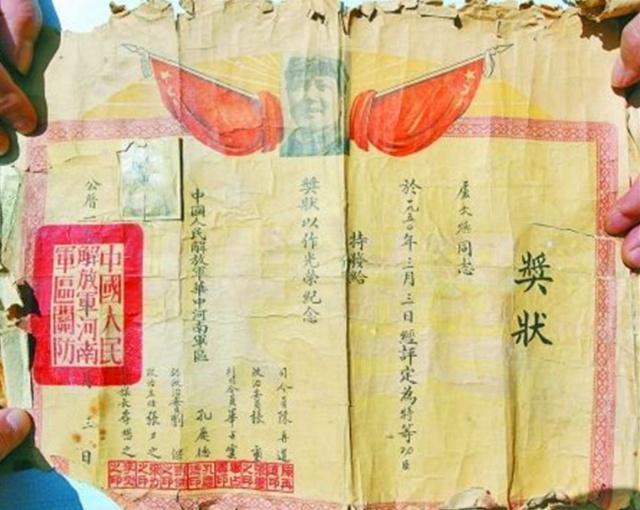 獎狀
同志
於一九五〇年三月三日經評定為特等功臣
特發給
獎狀以作光榮紀念
中國人民解放軍華中河南軍區
司令員陳再道
政治委員張璽
副司令員畢占雲
孔慶德
副政治委員劉傑
政治主任張力之
參謀長李懋之
公曆一
月三〇日
中國人民
解放軍河南
軍區關防